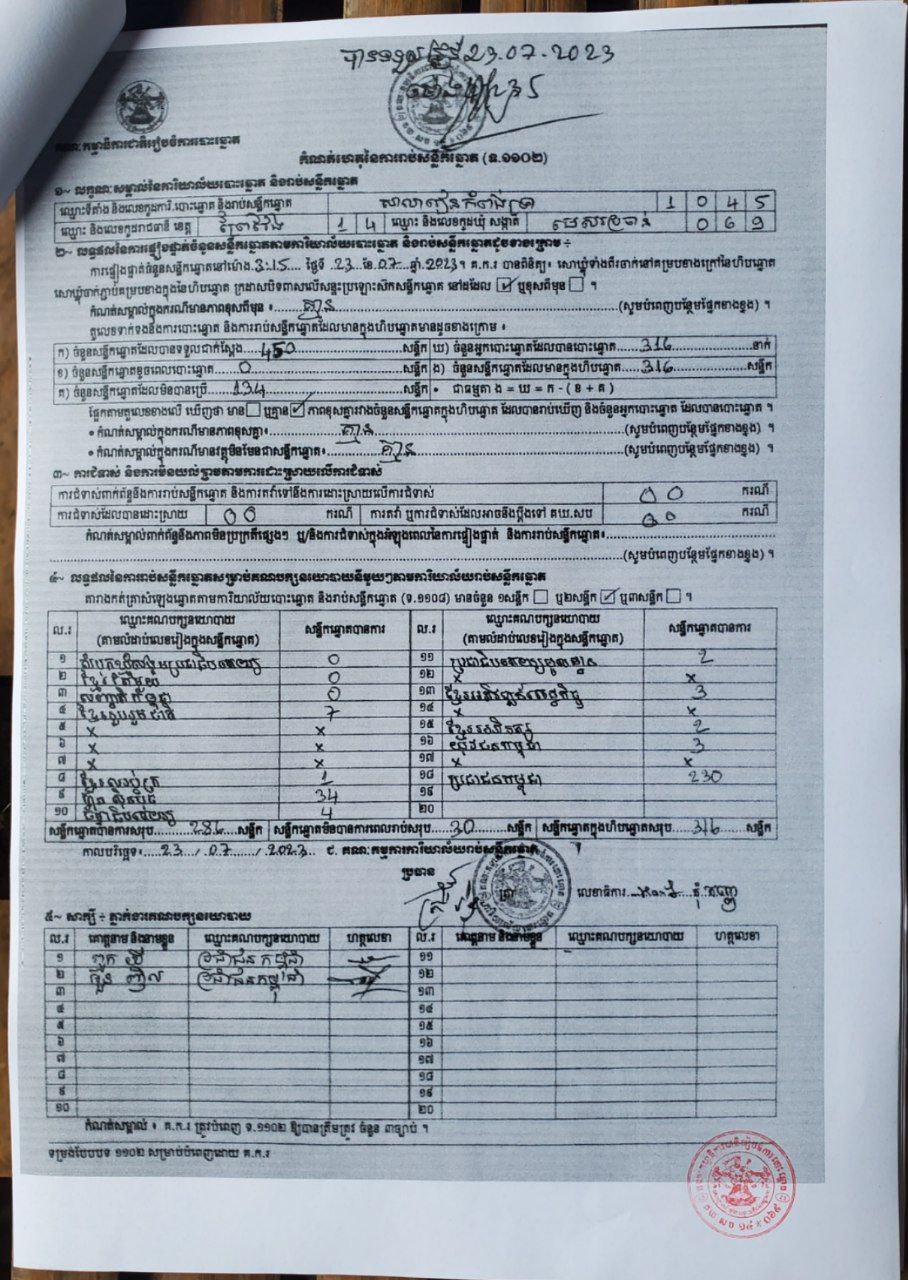 បានទទួលថ្ងៃទី 23.07.2023
គណៈកម្មាធិការជាតិរៀបចំការបោះឆ្នោត
កំណត់ហេតុនៃការរាប់សន្លឹកឆ្នោត (ទ.១១០២)
១~ លក្ខណៈសម្គាល់នៃការិយាល័យបោះឆ្នោត និងរាប់សន្លឹកឆ្នោត
ឈ្មោះទីតាំង និងលេខកូដការិ.បោះឆ្នោត និងរាប់សន្លឹកឆ្នោត សាលារៀនកំពង់ប្រា 1 0 4 5
ឈ្មោះ និងលេខកូដរាជធានី ខេត្ត ព្រៃវែង 1 4 ឈ្មោះ និងលេខកូដឃុំ សង្កាត់ មេសរប្រចាន់ 0 6 9
២~ លទ្ធផលនៃការផ្ទៀងផ្ទាត់ចំនួនសន្លឹកឆ្នោតតាមការិយាល័យបោះឆ្នោត និងរាប់សន្លឹកឆ្នោតដូចខាងក្រោម ÷
ការផ្ទៀងផ្ទាត់ចំនួនសន្លឹកឆ្នោតនៅម៉ោង.3:15.... ថ្ងៃទី .23 .ខែ.07.ឆ្នាំ.2023។ គ.ក.រ បានពិនិត្យ៖ សោឃ្លុំទាំងពីរចាក់នៅគម្របខាងក្រៅនៃហិបឆ្នោត
សោឃ្លុំចាក់ភ្ជាប់គម្របខាងក្នុងនៃហិបឆ្នោត ក្រដាសបិទពាសលើសន្ទះប្រឡោះសៀកសន្លឹកឆ្នោត នៅដដែល ☑ ឬខុសពីមុន ☐ ។
កំណត់សម្គាល់ក្នុងករណីមានភាពខុសពីមុន :.....គ្មាន.....(សូមបំពេញបន្ថែមផ្នែកខាងខ្នង) ។
តួលេខទាក់ទងនឹងការបោះឆ្នោត និងការរាប់សន្លឹកឆ្នោតដែលមានក្នុងហិបឆ្នោតមានដូចខាងក្រោម ៖
ក) ចំនួនសន្លឹកឆ្នោតដែលបានទទួលជាក់ស្តែង....450....សន្លឹក ឃ) ចំនួនអ្នកបោះឆ្នោតដែលបានបោះឆ្នោត.....316.....នាក់
ខ) ចំនួនសន្លឹកឆ្នោតខូចពេលបោះឆ្នោត.....0.....សន្លឹក ង) ចំនួនសន្លឹកឆ្នោតដែលមានក្នុងហិបឆ្នោត.....316.....សន្លឹក
គ) ចំនួនសន្លឹកឆ្នោតដែលមិនបានប្រើ.....134.....សន្លឹក • ជាធម្មតា ង = ឃ = ក - ( ខ + គ )
ផ្អែកតាមតួលេខខាងលើ ឃើញថា មាន ☐ ឬគ្មាន ☑ ភាពខុសគ្នារវាងចំនួនសន្លឹកឆ្នោតក្នុងហិបឆ្នោត ដែលបានរាប់ឃើញ និងចំនួនអ្នកបោះឆ្នោត ដែលបានបោះឆ្នោត ។
• កំណត់សម្គាល់ក្នុងករណីមានភាពខុសគ្នា៖.....គ្មាន.....(សូមបំពេញបន្ថែមផ្នែកខាងខ្នង) ។
• កំណត់សម្គាល់ក្នុងករណីមានវត្ថុមិនមែនជាសន្លឹកឆ្នោត៖.....គ្មាន.....(សូមបំពេញបន្ថែមផ្នែកខាងខ្នង) ។
៣~ ការជំទាស់ និងការមិនយល់ព្រមតាមការដោះស្រាយលើការជំទាស់
ការជំទាស់ពាក់ព័ន្ធនឹងការរាប់សន្លឹកឆ្នោត និងការតវ៉ាទៅនឹងការដោះស្រាយលើការជំទាស់ 00 ករណី
ការជំទាស់ដែលបានដោះស្រាយ 00 ករណី ការតវ៉ា ឬការជំទាស់ដែលអាចនឹងប្តឹងទៅ គឃ.សប 00 ករណី
កំណត់សម្គាល់ពាក់ព័ន្ធនឹងភាពមិនប្រក្រតីផ្សេងៗ ឬ/និងការជំទាស់ក្នុងអំឡុងពេលនៃការផ្ទៀងផ្ទាត់ និងការរាប់សន្លឹកឆ្នោត៖
(សូមបំពេញបន្ថែមផ្នែកខាងខ្នង) ។
៤~ លទ្ធផលនៃការរាប់សន្លឹកឆ្នោតសម្រាប់គណបក្សនយោបាយនីមួយៗតាមការិយាល័យរាប់សន្លឹកឆ្នោត
តារាងកត់គ្រាសំឡេងឆ្នោតតាមការិយាល័យបោះឆ្នោត និងរាប់សន្លឹកឆ្នោត (ទ.១១០៨) មានចំនួន ១សន្លឹក ☐ ឬ២សន្លឹក ☑ ឬ៣សន្លឹក ☐ ។
ល.រ ឈ្មោះគណបក្សនយោបាយ (តាមលំដាប់លេខរៀងក្នុងសន្លឹកឆ្នោត) សន្លឹកឆ្នោតបានការ ល.រ ឈ្មោះគណបក្សនយោបាយ (តាមលំដាប់លេខរៀងក្នុងសន្លឹកឆ្នោត) សន្លឹកឆ្នោតបានការ
១ 0 ១១ 2
២ ខ្មែរតែមួយ 0 ១២ x x
៣ 0 ១៣ ខ្មែរអភិវឌ្ឍន៍សេដ្ឋកិច្ច 3
៤ ខ្មែររួបរួមជាតិ 7 ១៤ x x
៥ x x ១៥ 2
៦ x x ១៦ យុវជនកម្ពុជា 3
៧ x x ១៧ x x
៨ 1 ១៨ ប្រជាជនកម្ពុជា 230
៩ ហ៊្វុនស៊ិនប៉ិច 34 ១៩
១០ 4 ២០
សន្លឹកឆ្នោតបានការសរុប.....286.....សន្លឹក សន្លឹកឆ្នោតមិនបានការពេលរាប់សរុប.....30.....សន្លឹក សន្លឹកឆ្នោតក្នុងហិបឆ្នោតសរុប.....316.....សន្លឹក
កាលបរិច្ឆេទ៖.....23...../.07...../.2023 ជ. គណៈកម្មការការិយាល័យរាប់សន្លឹកឆ្នោត
ប្រធាន
លេខាធិការ
៥~ សាក្សី ÷ ភ្នាក់ងារគណបក្សនយោបាយ
ល.រ គោត្តនាម និងនាមខ្លួន ឈ្មោះគណបក្សនយោបាយ ហត្ថលេខា ល.រ គោត្តនាម និងនាមខ្លួន ឈ្មោះគណបក្សនយោបាយ ហត្ថលេខា
១ ប្រជាជនកម្ពុជា ១១
២ ប្រជាជនកម្ពុជា ១២
៣ ១៣
៤ ១៤
៥ ១៥
៦ ១៦
៧ ១៧
៨ ១៨
៩ ១៩
១០ ២០
កំណត់សម្គាល់ ៖ គ.ក.រ ត្រូវបំពេញ ទ.១១០២ ឱ្យបានត្រឹមត្រូវ ចំនួន ៣ច្បាប់ ។
ទម្រង់បែបបទ ១១០២ សម្រាប់បំពេញដោយ គ.ក.រ